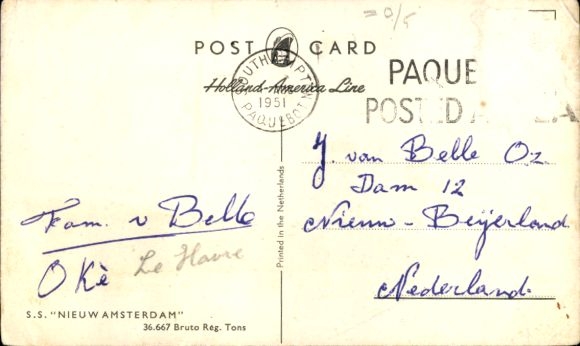 = 0/5
POST CARD
Holland-America Line
SOUTHAMPTON
1951
PAQUEBOT
PAQUE
POSTED A EA
Printed in the Netherlands
J. van Belle Oz
Dam 12
Nieuw-Beijerland
Nederland
Fam. v Belle
OKè
Le Havre
S.S. "NIEUW AMSTERDAM"
36.667 Bruto Reg. Tons